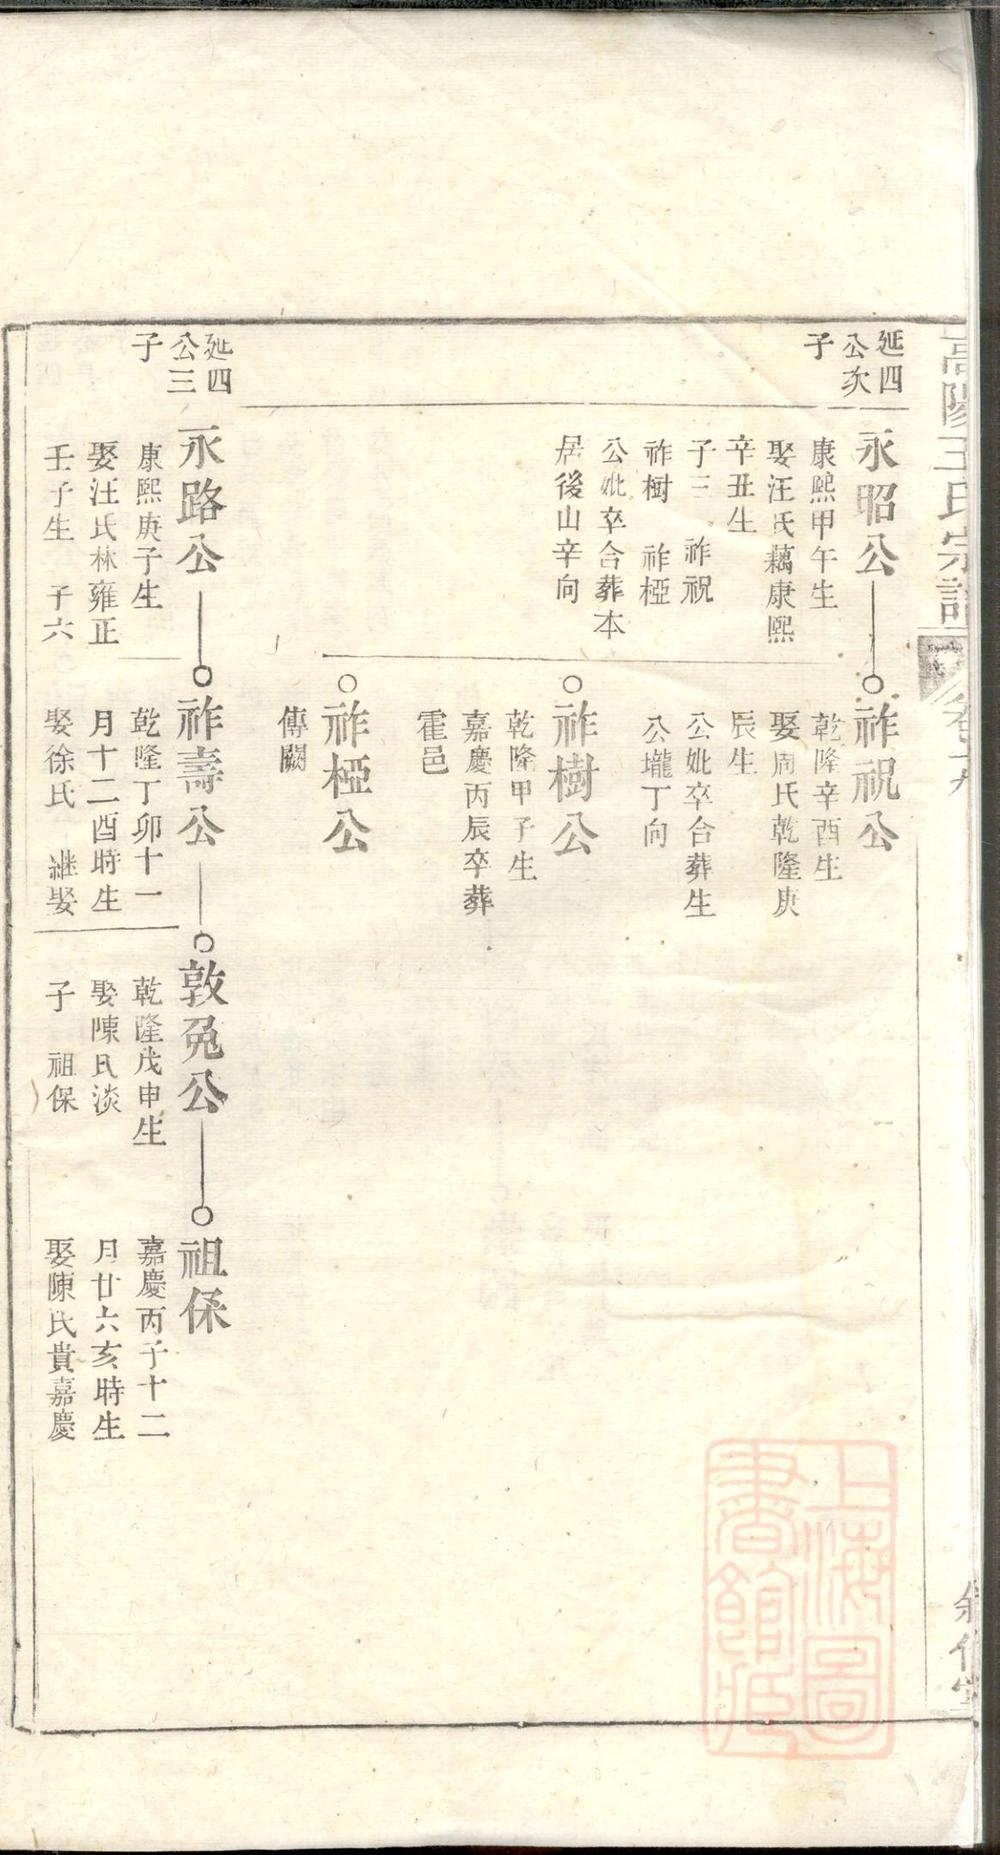 高陽王氏宗譜
延四
公次
子
永昭公
康熙甲午生
娶汪氏藕康熙
辛丑生
子三 祚祝
祚樹 祚椏
公妣卒合葬本
居後山辛向
祚祝公
乾隆辛酉生
娶周氏乾隆庚
辰生
公妣卒合葬生
公壠丁向
祚樹公
乾隆甲子生
嘉慶丙辰卒葬
霍邑
祚椏公
傳闕
延四
公三
子
永路公
康熙庚子生
娶汪氏林雍正
壬子生 子六
祚壽公
乾隆丁卯十一
月十二酉時生
娶徐氏 継娶
敦免公
乾隆戊申生
娶陳氏淡
子 祖保
祖保
嘉慶丙子十二
月廿六亥時生
娶陳氏貴嘉慶
上海圖
書館藏